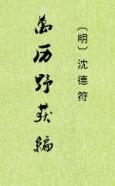 〔明〕沈德符
萬历野获编